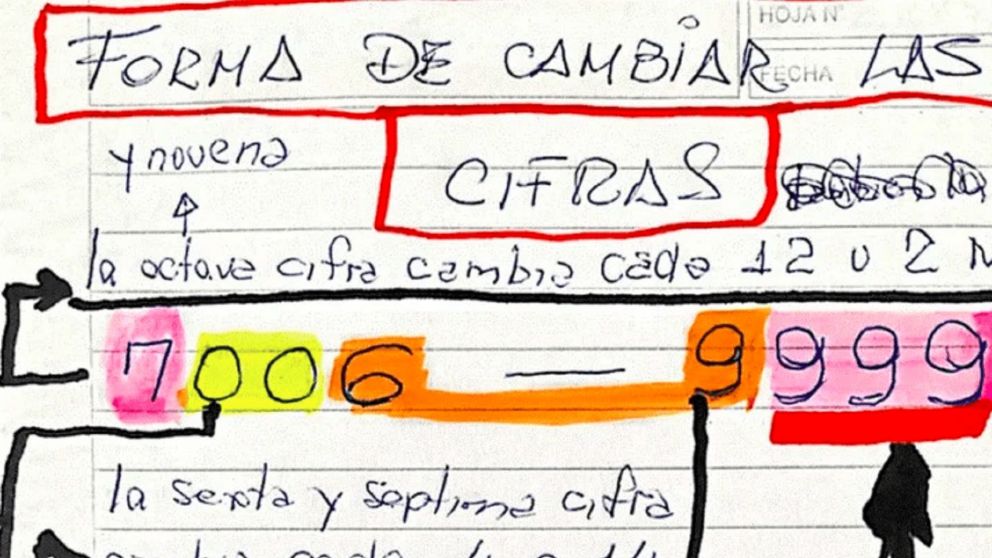 HOJA Nº
FORMA DE CAMBIAR LAS
FECHA
y novena
CIFRAS
la octava cifra cambia cada 12 u 2
7006 — 9999
la sexta y septima cifra